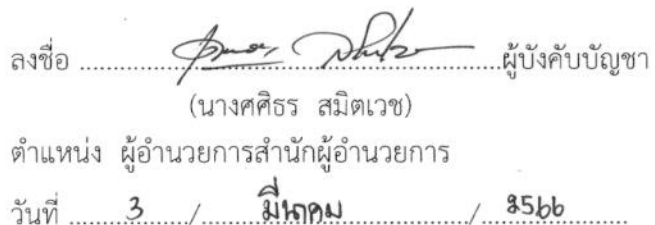 ลงชื่อ ........................................ผู้บังคับบัญชา
(นางศศิธร สมิตเวช)
ตำแหน่ง ผู้อำนวยการสำนักผู้อำนวยการ
วันที่ ........3......../........มีนาคม......../........2566........